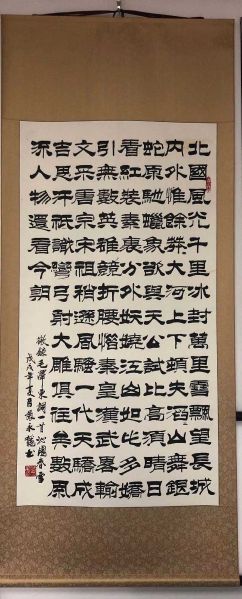 北國風光千里冰封萬里雪飄望長城
内外惟餘莽〻大河上下頓失滔〻山舞銀
蛇原馳蠟象欲與天公試比高須晴日
看紅裝素裹分外妖嬈江山如此多嬌
引無數英雄競折腰惜秦皇漢武略輸
文采唐宗宋祖稍遜風騷一代天驕成
吉思汗祇識彎弓射大雕俱往矣數風
流人物還看今朝
敬錄毛澤東詞一首沁園春雪
戊戌年夏月 永 書